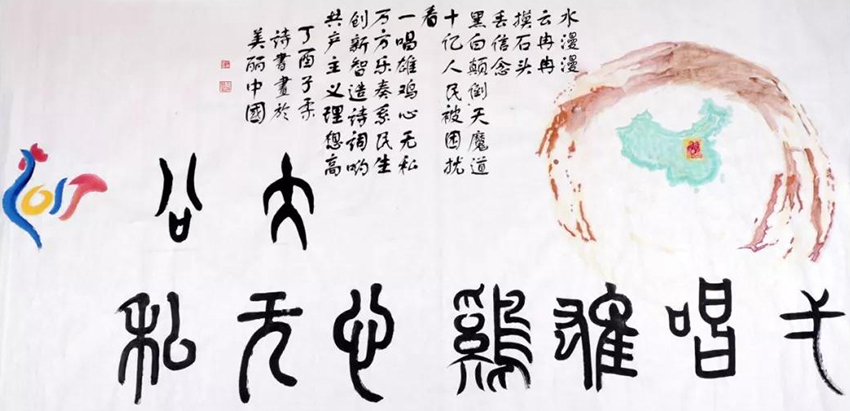 水漫漫
云冉冉
摸石头
丢信念
黑白颠倒天魔道
十亿人民被困扰
看
一唱雄鸡心无私
万方乐奏系民生
创新智造诗调哟
共产主义理想高
丁酉子季
诗书畫於
美丽中國
大公
唱雄鷄心无私
2017